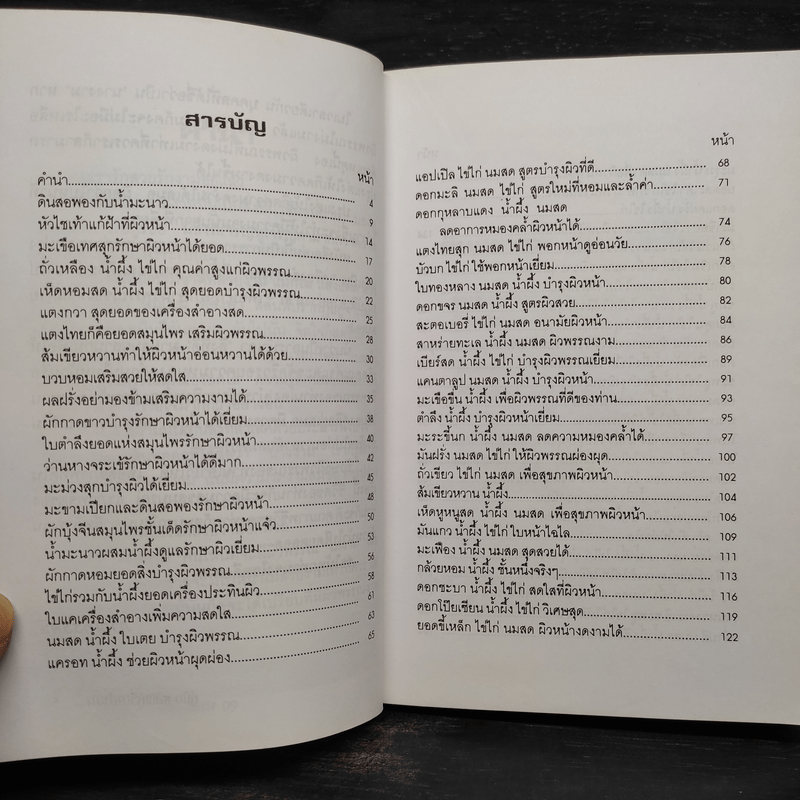 สารบัญ
หน้า
คำนำ
ดินสอพองกับน้ำมะนาว 4
หัวไชเท้าแก้ฝ้าที่ผิวหน้า 9
มะเขือเทศสุกรักษาผิวหน้าได้ยอด 14
ถั่วเหลือง น้ำผึ้ง ไข่ไก่ คุณค่าสูงแก่ผิวพรรณ 17
เห็ดหอมสด น้ำผึ้ง ไข่ไก่ สุดยอดบำรุงผิวพรรณ 20
แตงกวา สุดยอดของเครื่องสำอางสด 22
แตงไทยก็คือยอดสมุนไพร เสริมผิวพรรณ 25
ส้มเขียวหวานทำให้ผิวหน้าอ่อนหวานได้ด้วย 28
บวบหอมเสริมสวยให้สดใส 30
ผลฝรั่งอย่ามองข้ามเสริมความงามได้ 33
ผักกาดขาวบำรุงรักษาผิวหน้าได้เยี่ยม 35
ใบตำลึงยอดแห่งสมุนไพรรักษาผิวหน้า 38
ว่านหางจระเข้รักษาผิวหน้าได้ดีมาก 40
มะม่วงสุกบำรุงผิวได้เยี่ยม 42
มะขามเปียกและดินสอพองรักษาผิวหน้า 45
ผักบุ้งจีนสมุนไพรชั้นเด็ดรักษาผิวหน้าแจ๋ว 48
น้ำมะนาวผสมน้ำผึ้งดูแลรักษาผิวเยี่ยม 50
ผักกาดหอมยอดสิ่งบำรุงผิวพรรณ 53
ไข่ไก่รวมกับน้ำผึ้งยอดเครื่องประทินผิว 56
ใบแคเครื่องสำอางเพิ่มความสดใส 58
นมสด น้ำผึ้ง ใบเตย บำรุงผิวพรรณ 61
แครอท น้ำผึ้ง ช่วยผิวหน้าผุดผ่อง 63
65
หน้า
แอปเปิล ไข่ไก่ นมสด สูตรบำรุงผิวที่ดี 68
ดอกมะลิ นมสด ไข่ไก่ สูตรใหม่ที่หอมและล้ำค่า 71
ดอกกุหลาบแดง น้ำผึ้ง นมสด
ลดอาการหมองคล้ำผิวหน้าได้ 74
แตงไทยสุก นมสด ไข่ไก่ พอกหน้าดูอ่อนวัย 76
บัวบก ไข่ไก่ ใช้พอกหน้าเยี่ยม 78
ใบทองหลาง นมสด น้ำผึ้ง บำรุงผิวหน้า 80
ดอกขจร นมสด น้ำผึ้ง สูตรผิวสวย 82
สะตอเบอรี่ ไข่ไก่ นมสด อนามัยผิวหน้า 84
สาหร่ายทะเล น้ำผึ้ง นมสด ผิวพรรณงาม 86
เบียร์สด น้ำผึ้ง ไข่ไก่ บำรุงผิวพรรณเยี่ยม 89
แคนตาลูป นมสด น้ำผึ้ง บำรุงผิวหน้า 91
มะเขือขื่น น้ำผึ้ง เพื่อผิวพรรณที่ดีของท่าน 93
ตำลึง น้ำผึ้ง บำรุงผิวหน้าเยี่ยม 95
มะระขี้นก น้ำผึ้ง นมสด ลดความหมองคล้ำได้ 97
มันฝรั่ง นมสด ไข่ไก่ ให้ผิวพรรณผ่องผุด 100
ถั่วเขียว ไข่ไก่ นมสด เพื่อสุขภาพผิวหน้า 102
ส้มเขียวหวาน น้ำผึ้ง 104
เห็ดหูหนูสด น้ำผึ้ง นมสด เพื่อสุขภาพผิวหน้า 106
มันแกว น้ำผึ้ง ไข่ไก่ ใบหน้าไฉไล 109
มะเฟือง น้ำผึ้ง นมสด สุดสวยได้ 111
กล้วยหอม น้ำผึ้ง ชั้นหนึ่งจริงๆ 113
ดอกชะบา น้ำผึ้ง ไข่ไก่ สดใสที่ผิวหน้า 116
ดอกโป๊ยเซียน น้ำผึ้ง ไข่ไก่ วิเศษสุด 119
ยอดขี้เหล็ก ไข่ไก่ นมสด ผิวหน้างดงามได้ 122